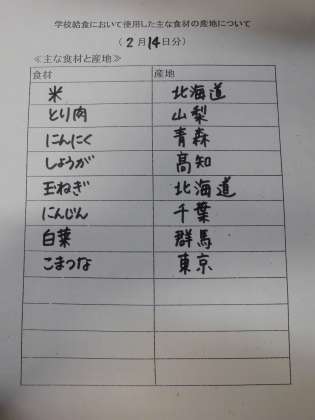 学校給食において使用した主な食材の産地について
(2月14日分)
≪主な食材と産地≫
食材 産地
米 北海道
とり肉 山梨
にんにく 青森
しょうが 高知
玉ねぎ 北海道
にんじん 千葉
白菜 群馬
こまつな 東京